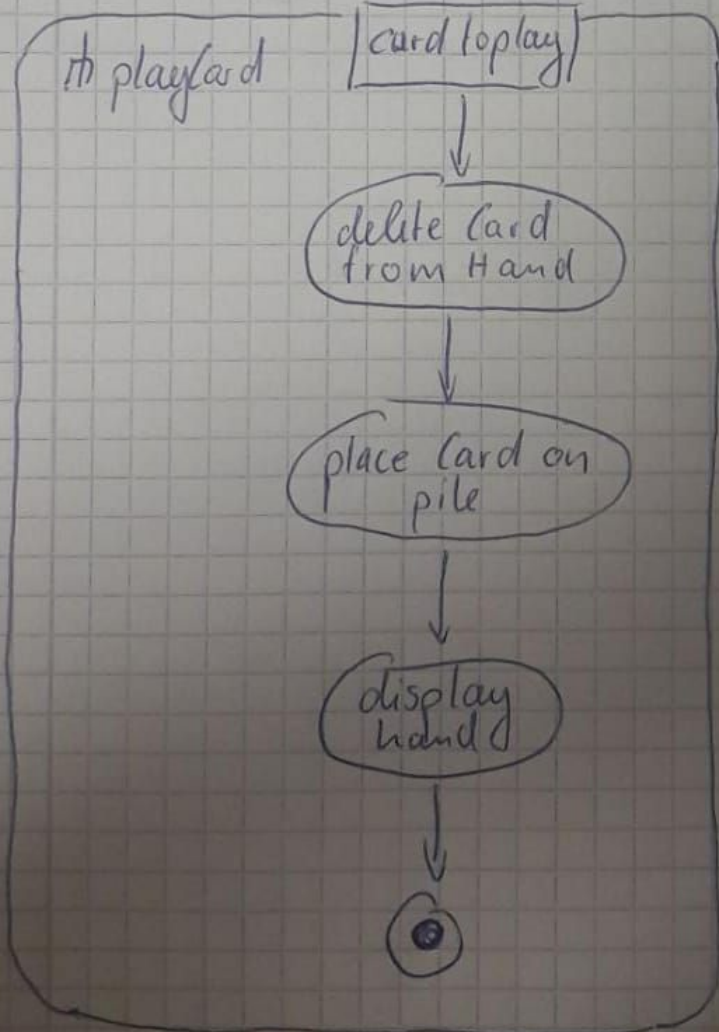 playCard
card to play
delete Card
from Hand
place Card on
pile
display
hand